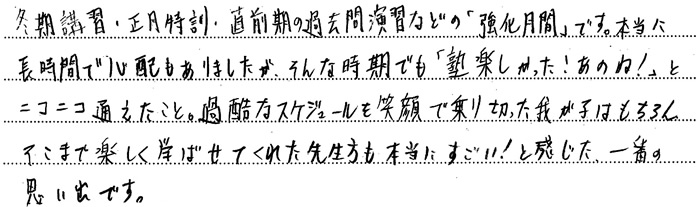 冬期講習・正月特訓・直前期の過去問演習などの「強化月間」です。本当に
長時間で心配もありましたが、そんな時期でも「塾楽しかった！あのね！」と
ニコニコ通えたこと。過酷なスケジュールを笑顔で乗り切った我が子はもちろん
そこまで楽しく学ばせてくれた先生方も本当にすごい！と感じた、一番の
思い出です。